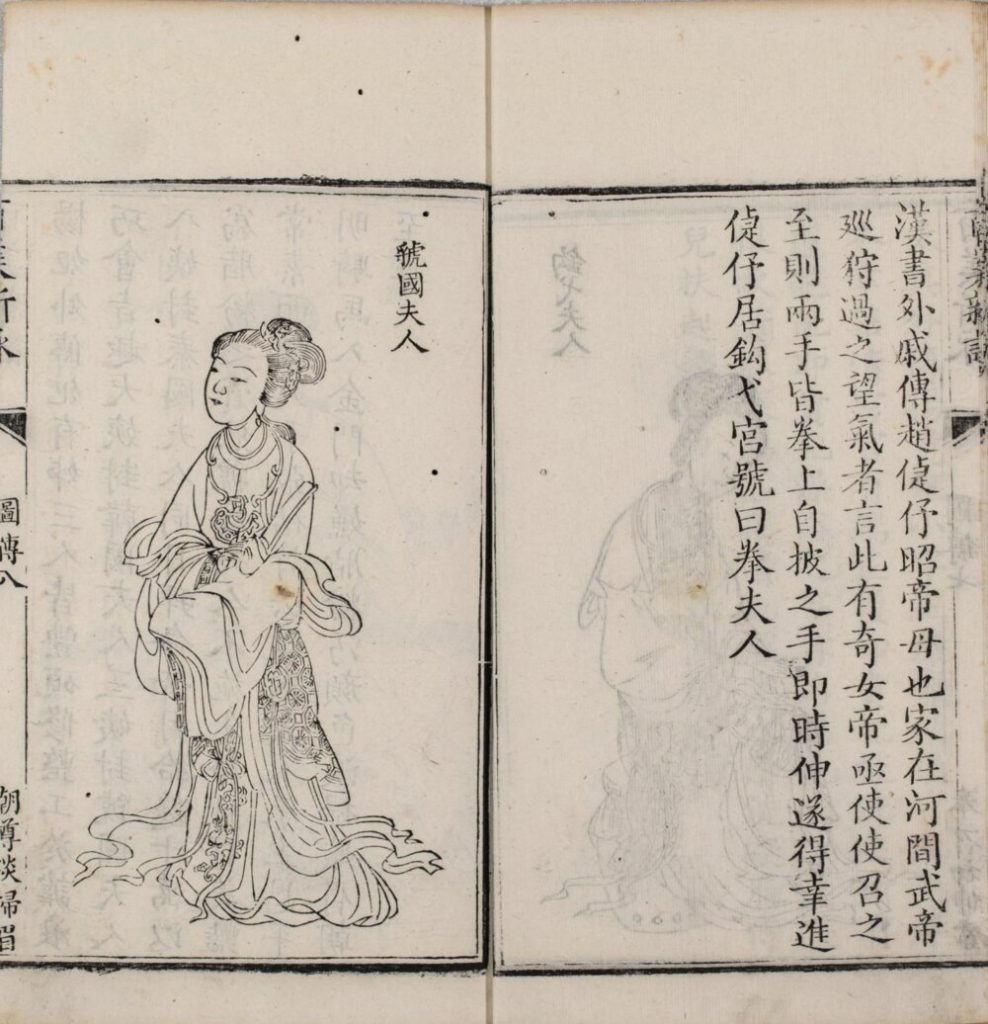 漢書外戚傳趙倢伃昭帝母也家在河間武帝
巡狩過之望氣者言此有奇女帝亟使使召之
至則兩手皆拳上自披之手即時伸遂得幸進
倢伃居鈎弋宮號曰拳夫人
虢國夫人
圖傳八
朝尊淡掃眉